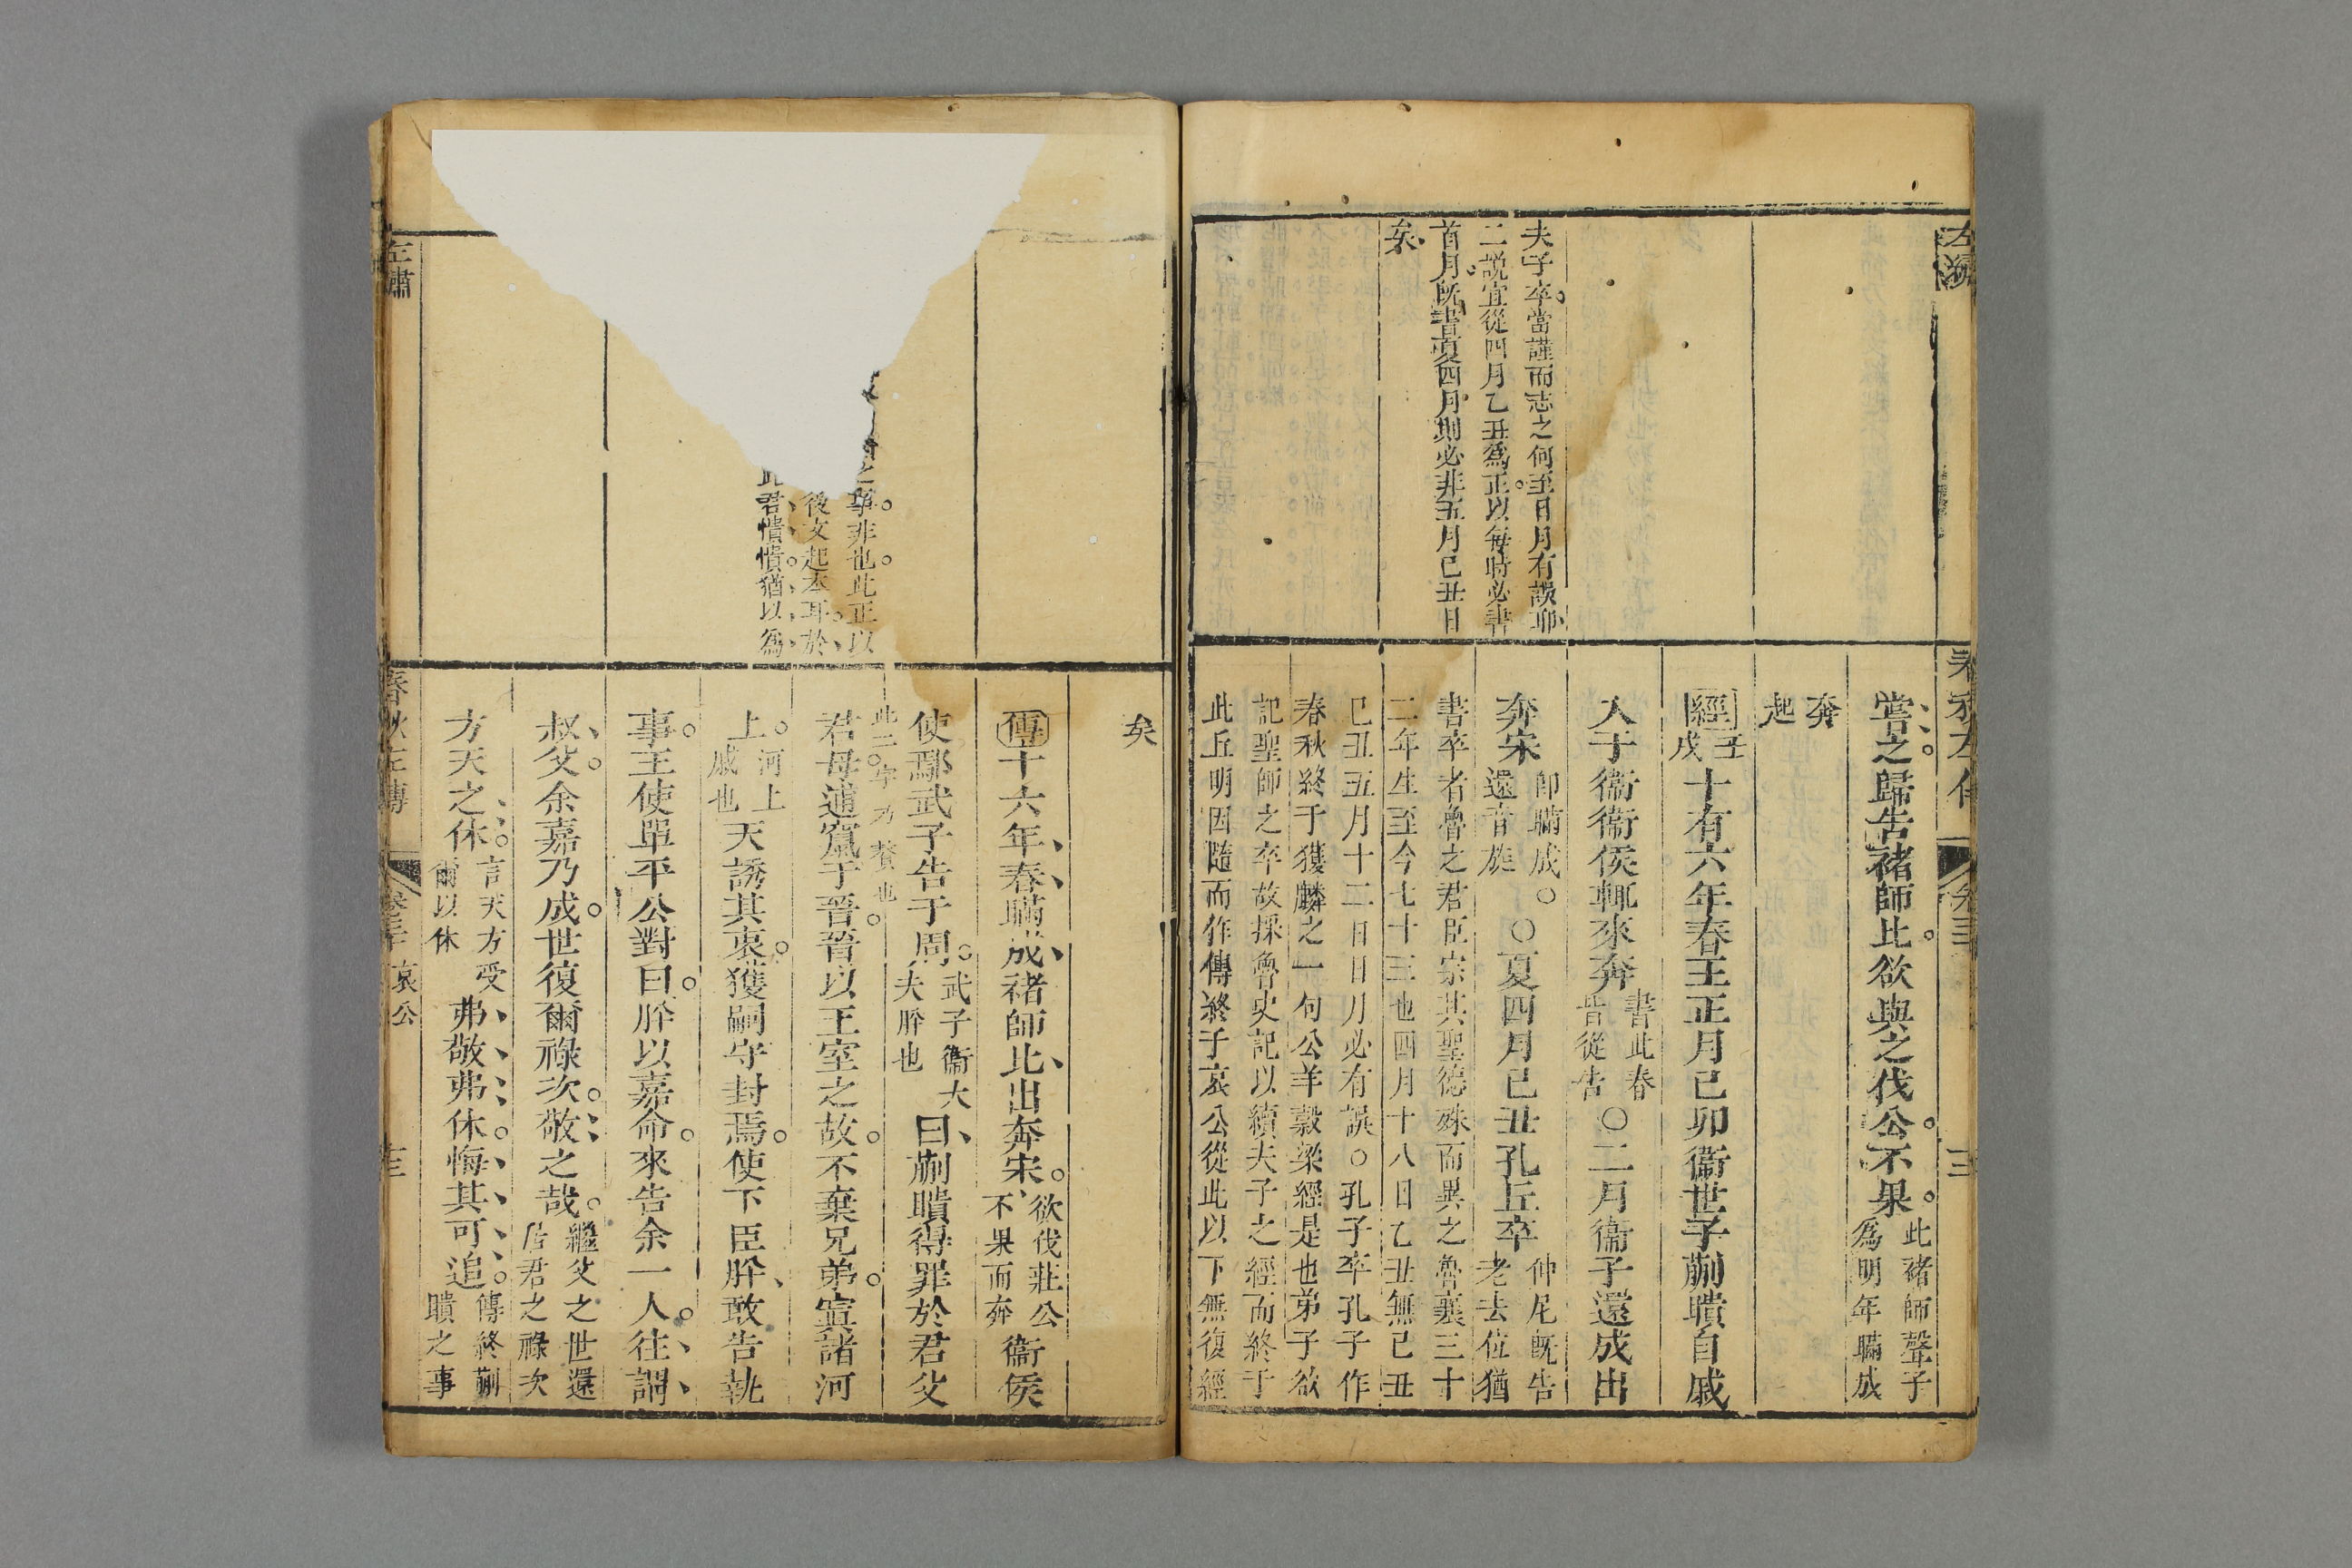 春秋左傳
嘗之歸告褚師比欲與之伐公不果此褚師聲子
爲明年瞞成
奔
起
經壬
戌十有六年春王正月己卯衞世子蒯聵自戚
入于衞衞侯輒來奔書此春
皆從告〇二月衞子還成出
奔宋卽瞞成〇
還音旋〇夏四月己丑孔丘卒仲尼旣告
老去位猶
書卒者魯之君臣宗其聖德殊而異之魯襄三十
二年生至今七十三也四月十八日乙丑無己丑
己丑五月十二日日月必有誤〇孔子卒孔子作
春秋終于獲麟之一句公羊穀梁經是也弟子欲
記聖師之卒故採魯史記以續夫子之經而終于
此丘明因隨而作傳終于哀公從此以下無復經
夫子卒當謹而志之何至日月有誤耶
二説宜從四月乙丑爲正以每時必書
首月旣書夏四月則必非五月己丑日
矣
矣
傳十六年春瞞成褚師比出奔宋欲伐莊公
不果而奔衞侯
使鄢武子告于周武子衞大
夫肸也曰蒯聵得罪於君父
此二字乃贅也
君母逋竄于晉晉以王室之故不棄兄弟寘諸河
上河上
戚也天誘其衷獲嗣守封焉使下臣肸敢告執
事王使單平公對曰肸以嘉命來告余一人往謂
叔父余嘉乃成世復爾祿次敬之哉繼父之世還
居君之祿次
方天之休言天方受
爾以休弗敬弗休悔其可追傳終蒯
聵之事
之事非也此正以
後文起本耳於
此君憒憒猶以爲
左繡
春秋左傳
哀公